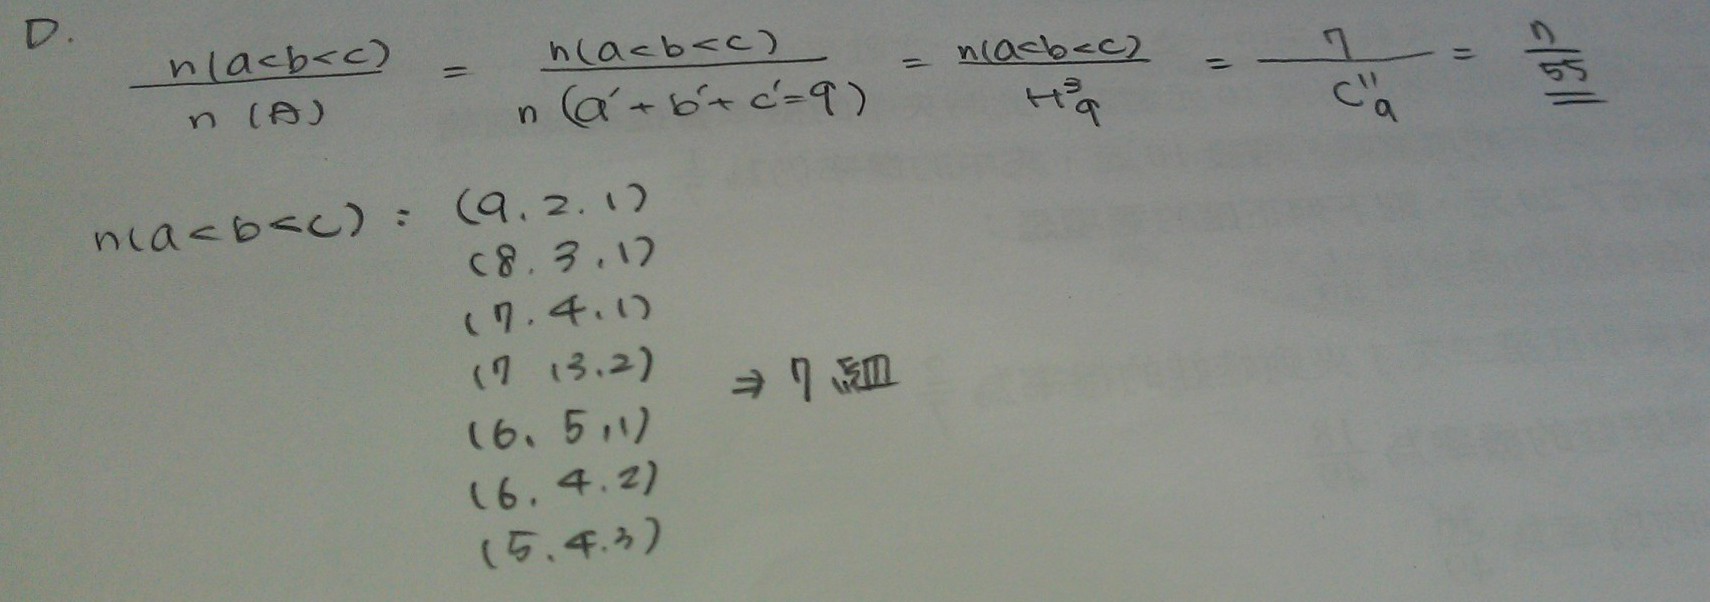 D.
n(a<b<c) / n(A) = n(a<b<c) / n(a'+b'+c'=9) = n(a<b<c) / H³₉ = 7 / C¹¹₉ = 7 / 55
n(a<b<c) : (9.2.1)
(8.3.1)
(7.4.1)
(7.3.2) ⇒ 7組
(6.5.1)
(6.4.2)
(5.4.3)